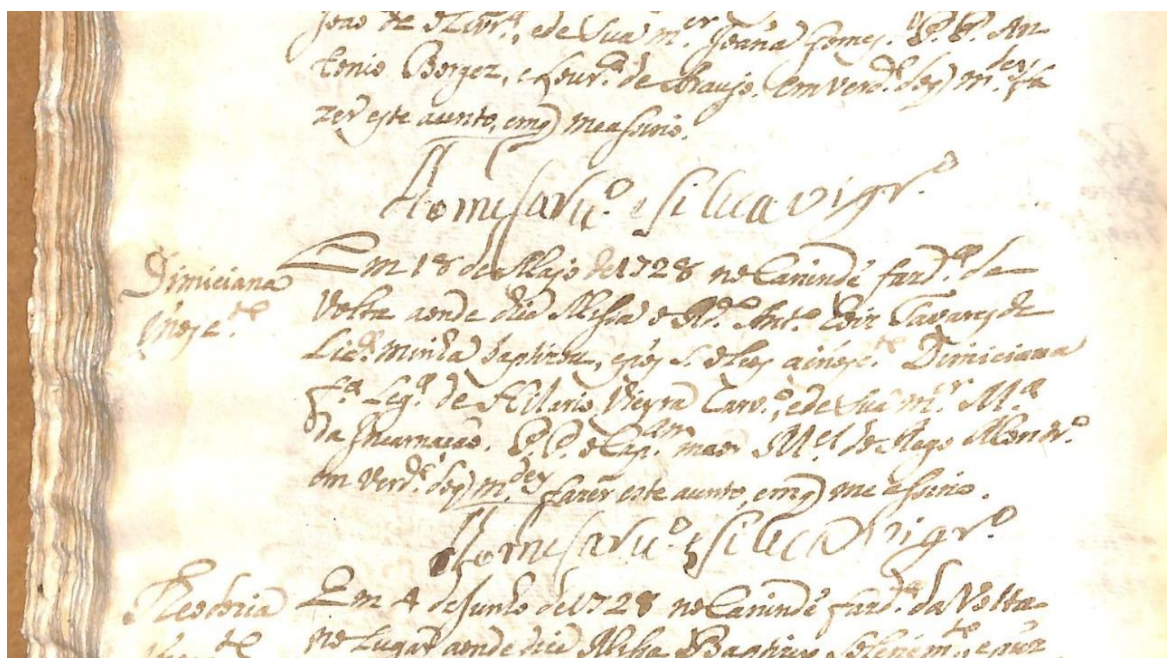 João de Olivr.ª, e de Sua m.er Joana Gomes. P.P. An-
tonio Borgez, e Lour.ça de Araujo. Em verd.e do q m.dey fa
zer este acento, em q me asino.
Thome Carv.º e Silva Vigr.º
Dimiciana
Em 18 de Majo de 1728 no Canindé faz.da da
Volta aonde diço Missa o R.do Ant.º Tavares de
Lic.ª minha baptizou, e pos S. oleos a inoçe.te Dimiciana
f.ª Leg.ª de Hilario Vieyra Carv.º, e de Sua m.er M.ª
da Incarnação. P.P. o Cap.am maor M.el do Rego Montr.º
em verd.e do q m.dey fazer este acento, em q me asino.
Thome Carv.º e Silva Vigr.º
Em 4 de Junho de 1728 no Canindé faz.da da Volta
no Lugar aonde diço Missa Baptizou Solenem.te, e puz